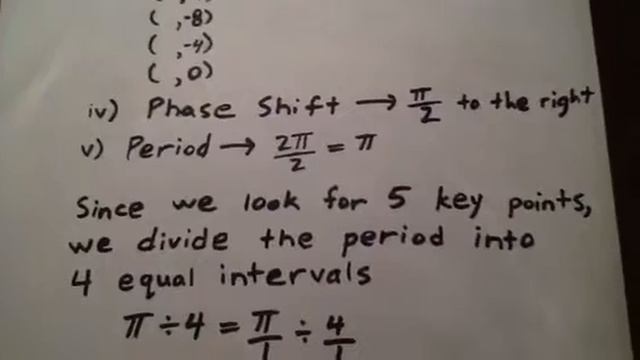 ( ,-8)
( ,-4)
( ,0)
iv) Phase Shift → π/2 to the right
v) Period → 2π/2 = π
Since we look for 5 key points,
we divide the period into
4 equal intervals
π ÷ 4 = π/1 ÷ 4/1